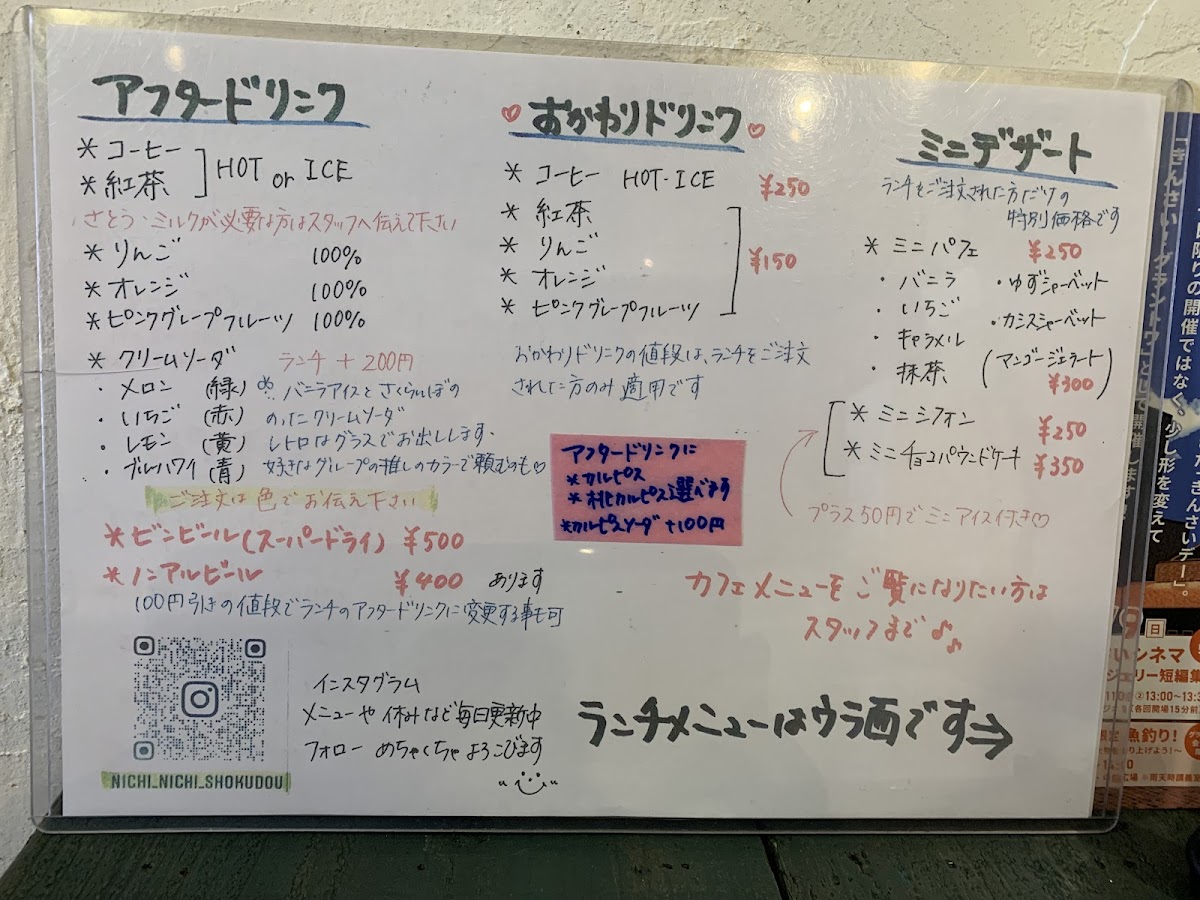 アフタードリンク
* コーヒー
* 紅茶
HOT or ICE
さとう・ミルクが必要な方はスタッフへ伝えて下さい
* りんご 100%
* オレンジ 100%
* ピンクグレープフルーツ 100%
* クリームソーダ ランチ + 200円
・ メロン (緑)
・ いちご (赤)
・ レモン (黄)
・ ブルーハワイ (青)
バニラアイスと さくらんぼの
のったクリームソーダ
レトロなグラスでお出しします。
好きなグループの推しのカラーで頼むのも♡
ご注文は 色で お伝え下さい
* ビンビール(スーパードライ) ¥500
* ノンアルビール ¥400 あります
100円引きの値段でランチのアフタードリンクに変更する事も可
インスタグラム
メニューや休みなど毎日更新中
フォロー めちゃくちゃ よろこびます
NICHI_NICHI_SHOKUDOU
♡ おかわりドリンク ♡
* コーヒー HOT・ICE ¥250
* 紅茶
* りんご
* オレンジ
* ピンクグレープフルーツ
¥150
おかわりドリンクの値段は、ランチをご注文
された方のみ 適用です
アフタードリンクに
*カルピス
*桃カルピス選べます
*カルピスソーダ +100円
ミニデザート
ランチをご注文された方だけの
特別価格です
* ミニパフェ ¥250
・ バニラ
・ いちご
・ キャラメル
・ 抹茶
・ゆずシャーベット
・カシスシャーベット
(マンゴージェラート)
¥300
* ミニシフォン ¥250
* ミニチョコパウンドケーキ ¥350
プラス50円でミニアイス付き♡
カフェメニューを ご覧になりたい方は
スタッフまで♪♪
ランチメニューはウラ面です⇒
の開催ではなく、少し形を変えて
日
シネマ
短編集
②13:00~13:3
各回開場15分前
魚釣り!